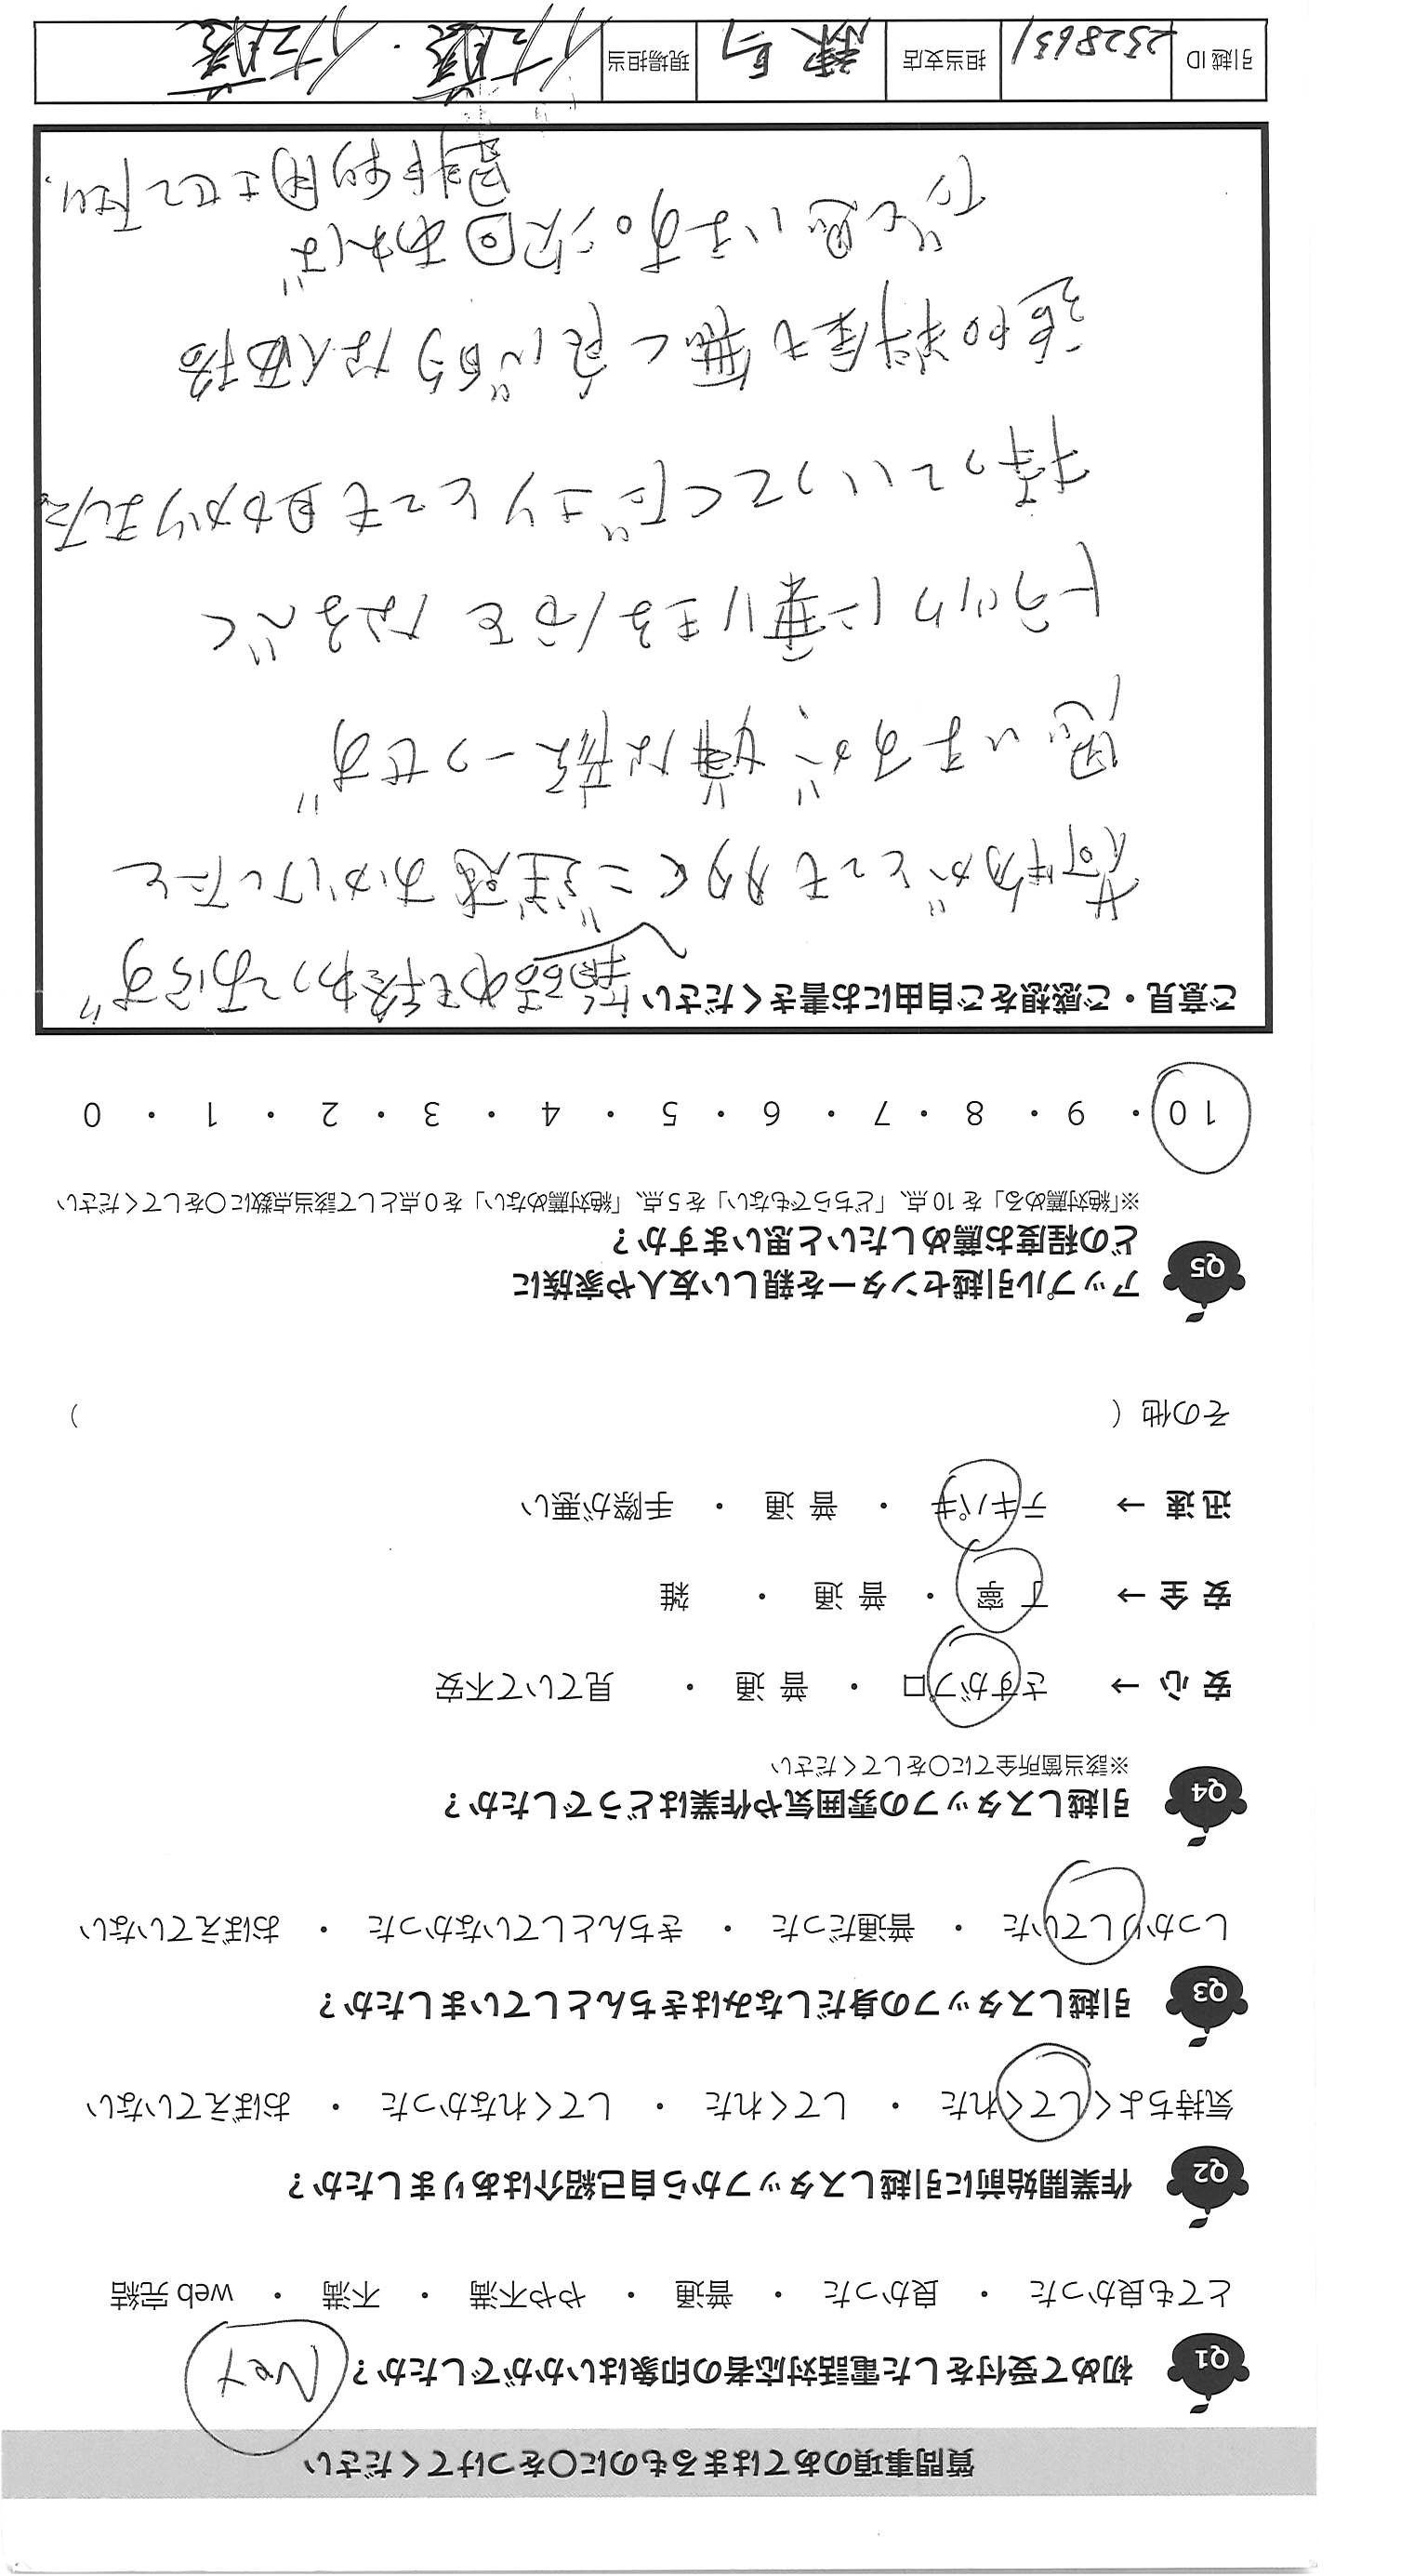 質問事項のあてはまるものに○をつけてください
Q1 初めて受付をした電話対応者の印象はいかがでしたか? Net
とても良かった ・ 良かった ・ 普通 ・ やや不満 ・ 不満 ・ web 完結
Q2 作業開始前に引越しスタッフから自己紹介はありましたか?
気持ちよくしてくれた ・ してくれた ・ してくれなかった ・ おぼえていない
Q3 引越しスタッフの身だしなみはきちんとしていましたか?
しっかりしていた ・ 普通だった ・ きちんとしていなかった ・ おぼえていない
Q4 引越しスタッフの雰囲気や作業はどうでしたか?
※該当箇所全てに○をしてください
安 心 → さすがプロ ・ 普 通 ・ 見ていて不安
安 全 → 丁 寧 ・ 普 通 ・ 雑
迅 速 → テキパキ ・ 普 通 ・ 手際が悪い
その他 ( )
Q5 アップル引越センターを親しい友人や家族に
どの程度お薦めしたいと思いますか?
※「絶対薦める」を 10 点、「どちらでもない」を 5 点、「絶対薦めない」を 0 点として該当点数に○をしてください
10 ・ 9 ・ 8 ・ 7 ・ 6 ・ 5 ・ 4 ・ 3 ・ 2 ・ 1 ・ 0
ご意見・ご感想をご自由にお書きください
荷物がとても多くご迷惑おかけしたと
思いますが、嫌な顔一つせず
トラックに乗りきる分をなるべく
持っていってくださりとても助かりました。
追加料金も無く良心的な価格
だと思います。次回あれば
是非利用させて下さい。
引越 ID 2528631 担当支店 練馬 現場担当 佐藤・佐藤